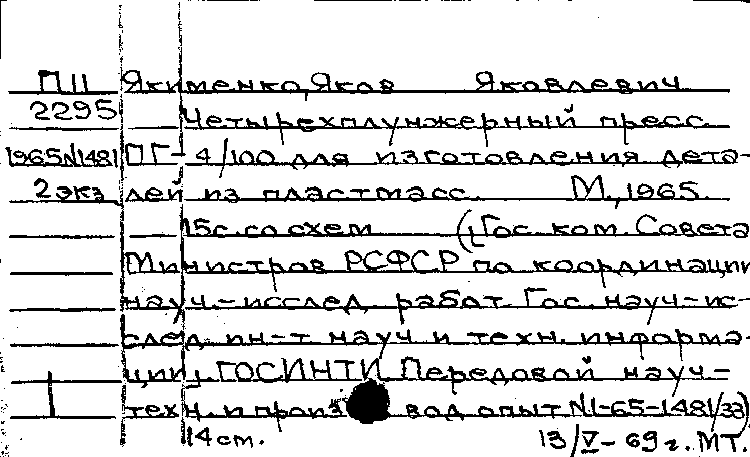 П11 Якименко, Яков Яковлевич
2295 Четырехплунжерный пресс
1965N1481 ПГ-4/100 для изготовления дета-
2 экз лей из пластмасс. М., 1965.
15с. со схем (Гос. ком. Совета
Министров РСФСР по координации
науч.-исслед. работ. Гос. науч-ис-
след. ин-т науч и техн. информа-
ции, ГОСИНТИ. Передовой науч-
техн. и производ опыт N1-65-1481/33)
14 см. 13/V-69г. МТ.